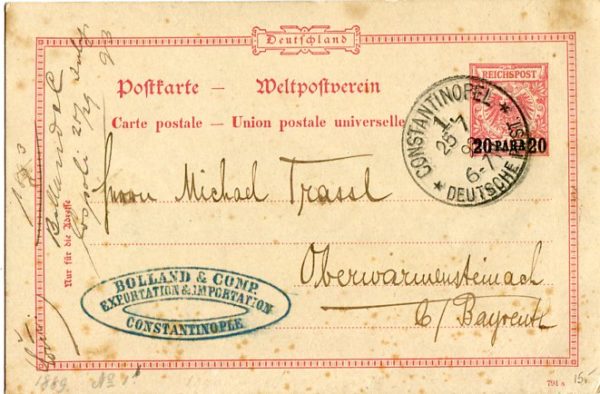 Deutschland
Postkarte — Weltpostverein
Carte postale — Union postale universelle
REICHSPOST
20 PARA 20
CONSTANTINOPEL 1
25 7
6-7
DEUTSCHE POST
Herrn Michael Trassl
Oberwarmensteinach
b/ Bayreuth
Nur für die Adresse
BOLLAND & COMP.
EXPORTATION & IMPORTATION
CONSTANTINOPLE
1893
Bolland & C
93
1889 No 1
791 a
15.-